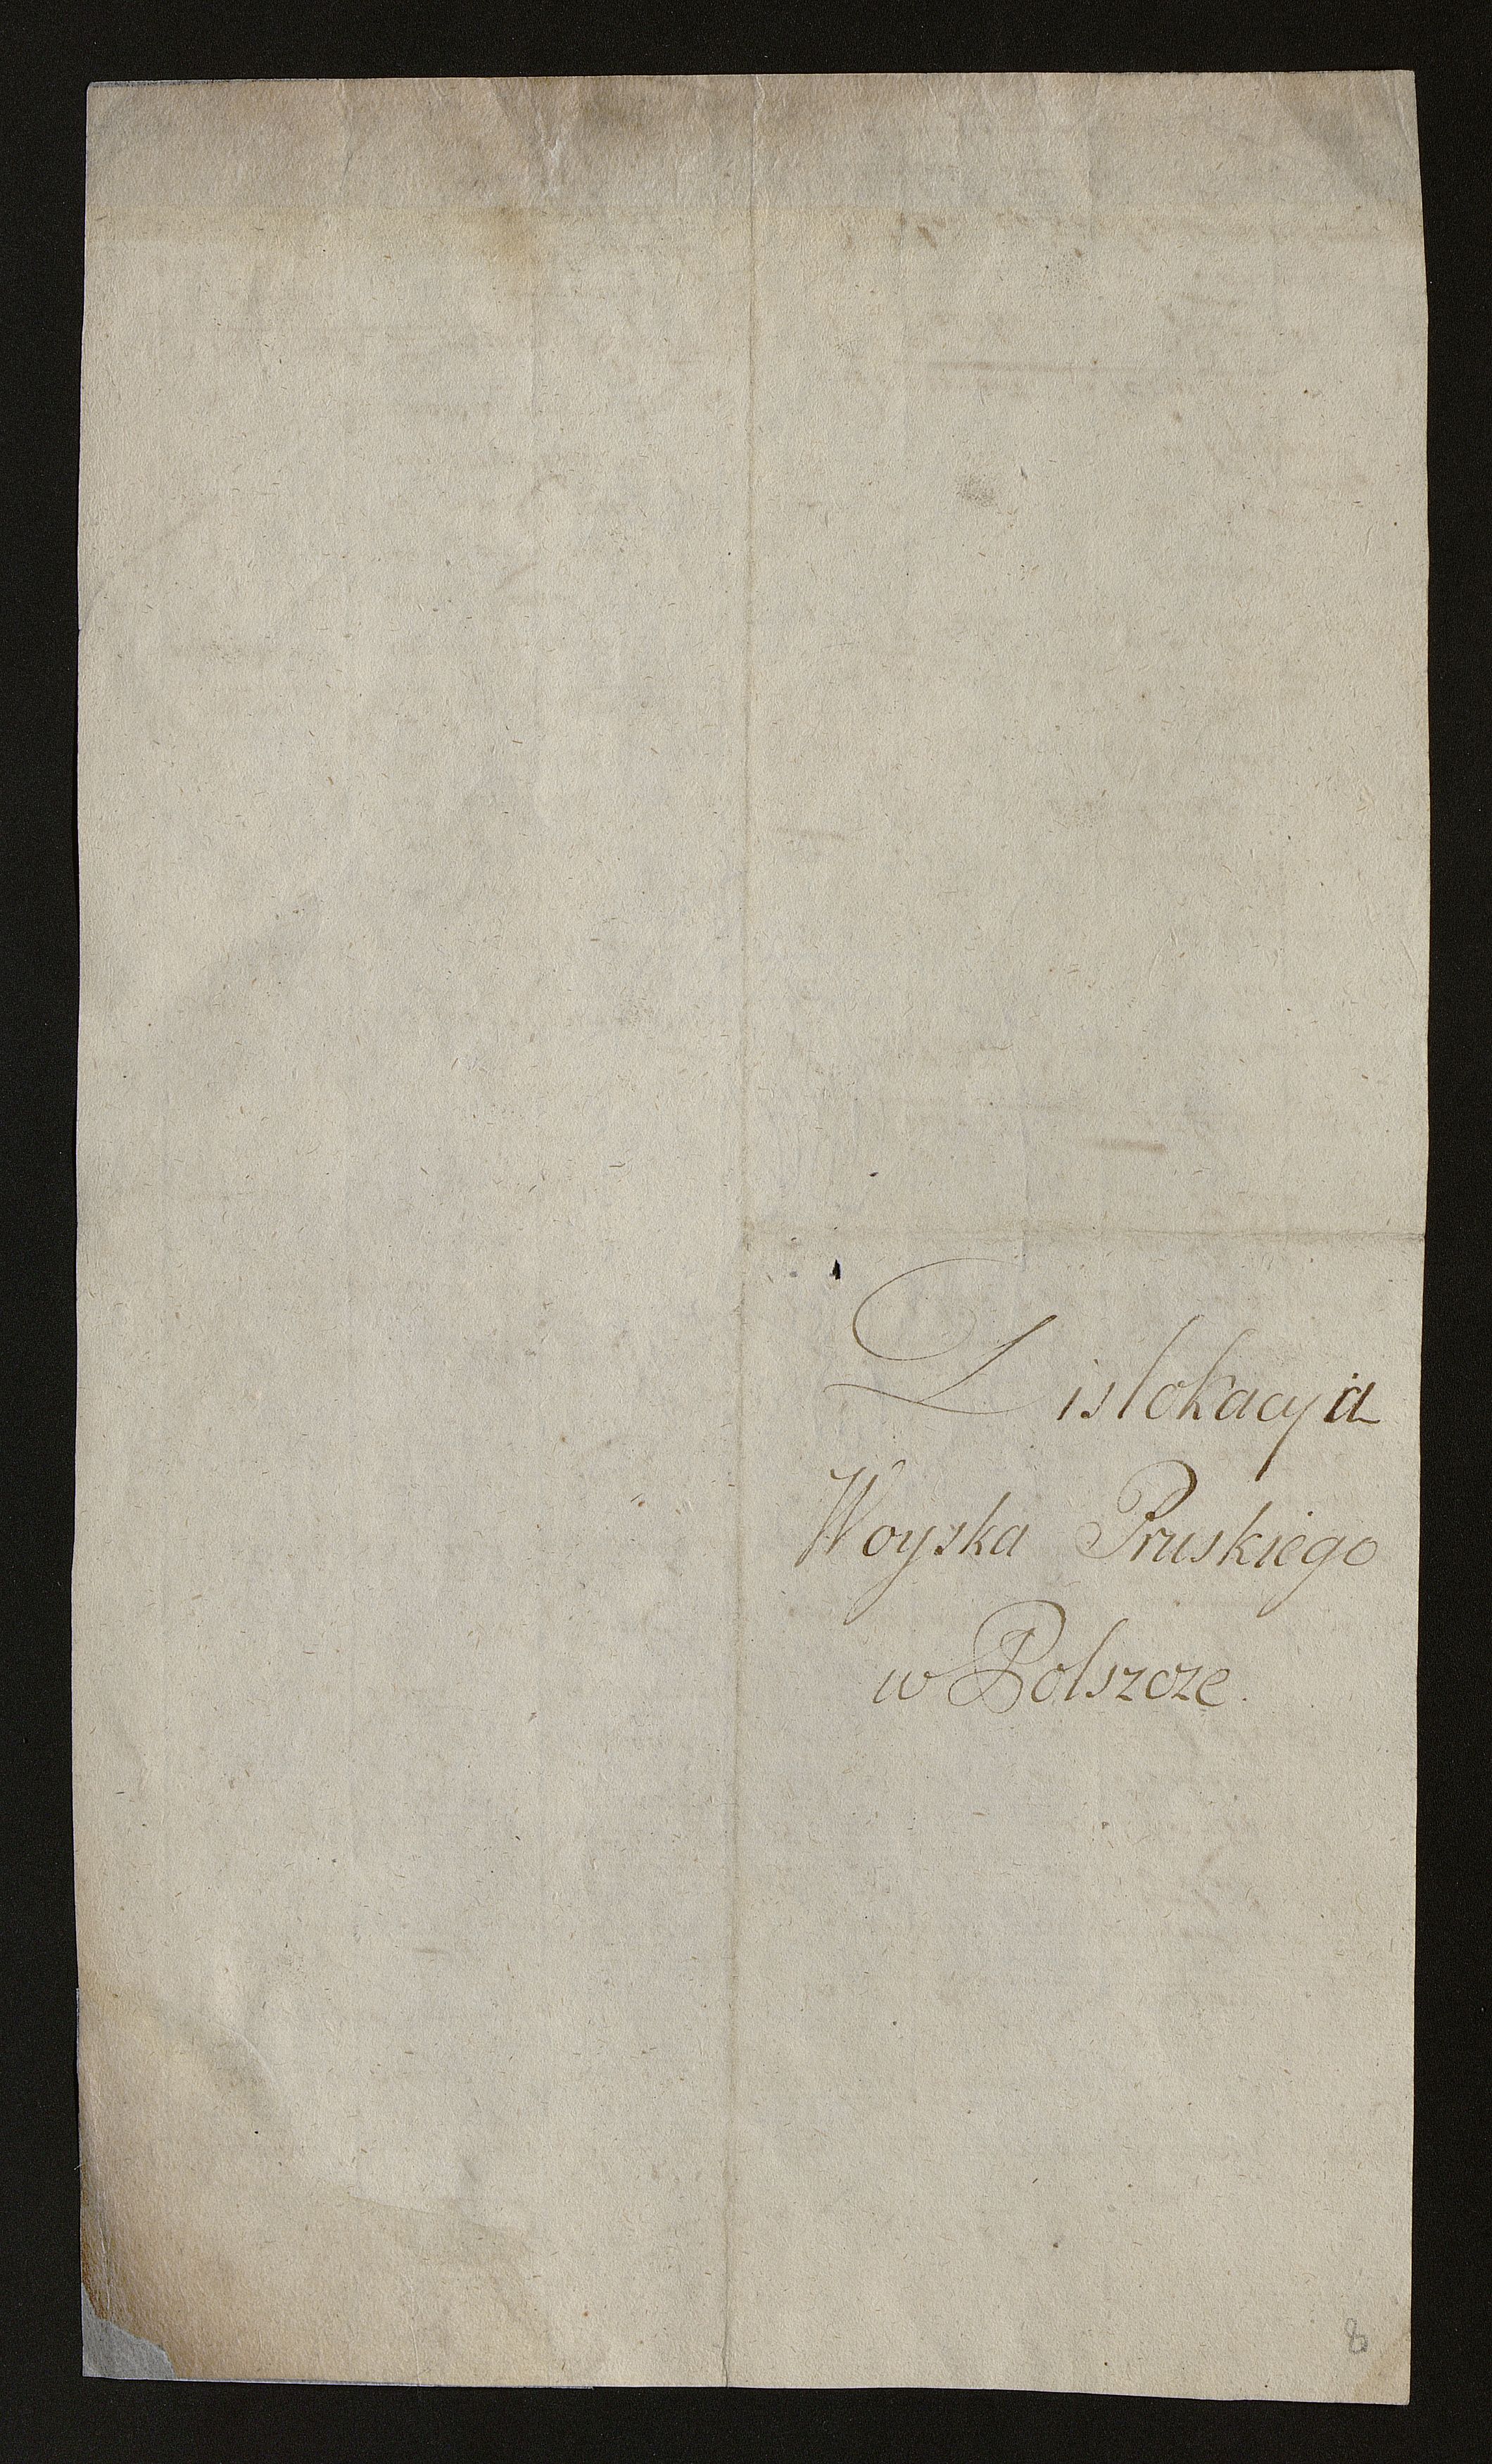 Dislokacyia
Woyska Pruskiego
w Polszcze.
8